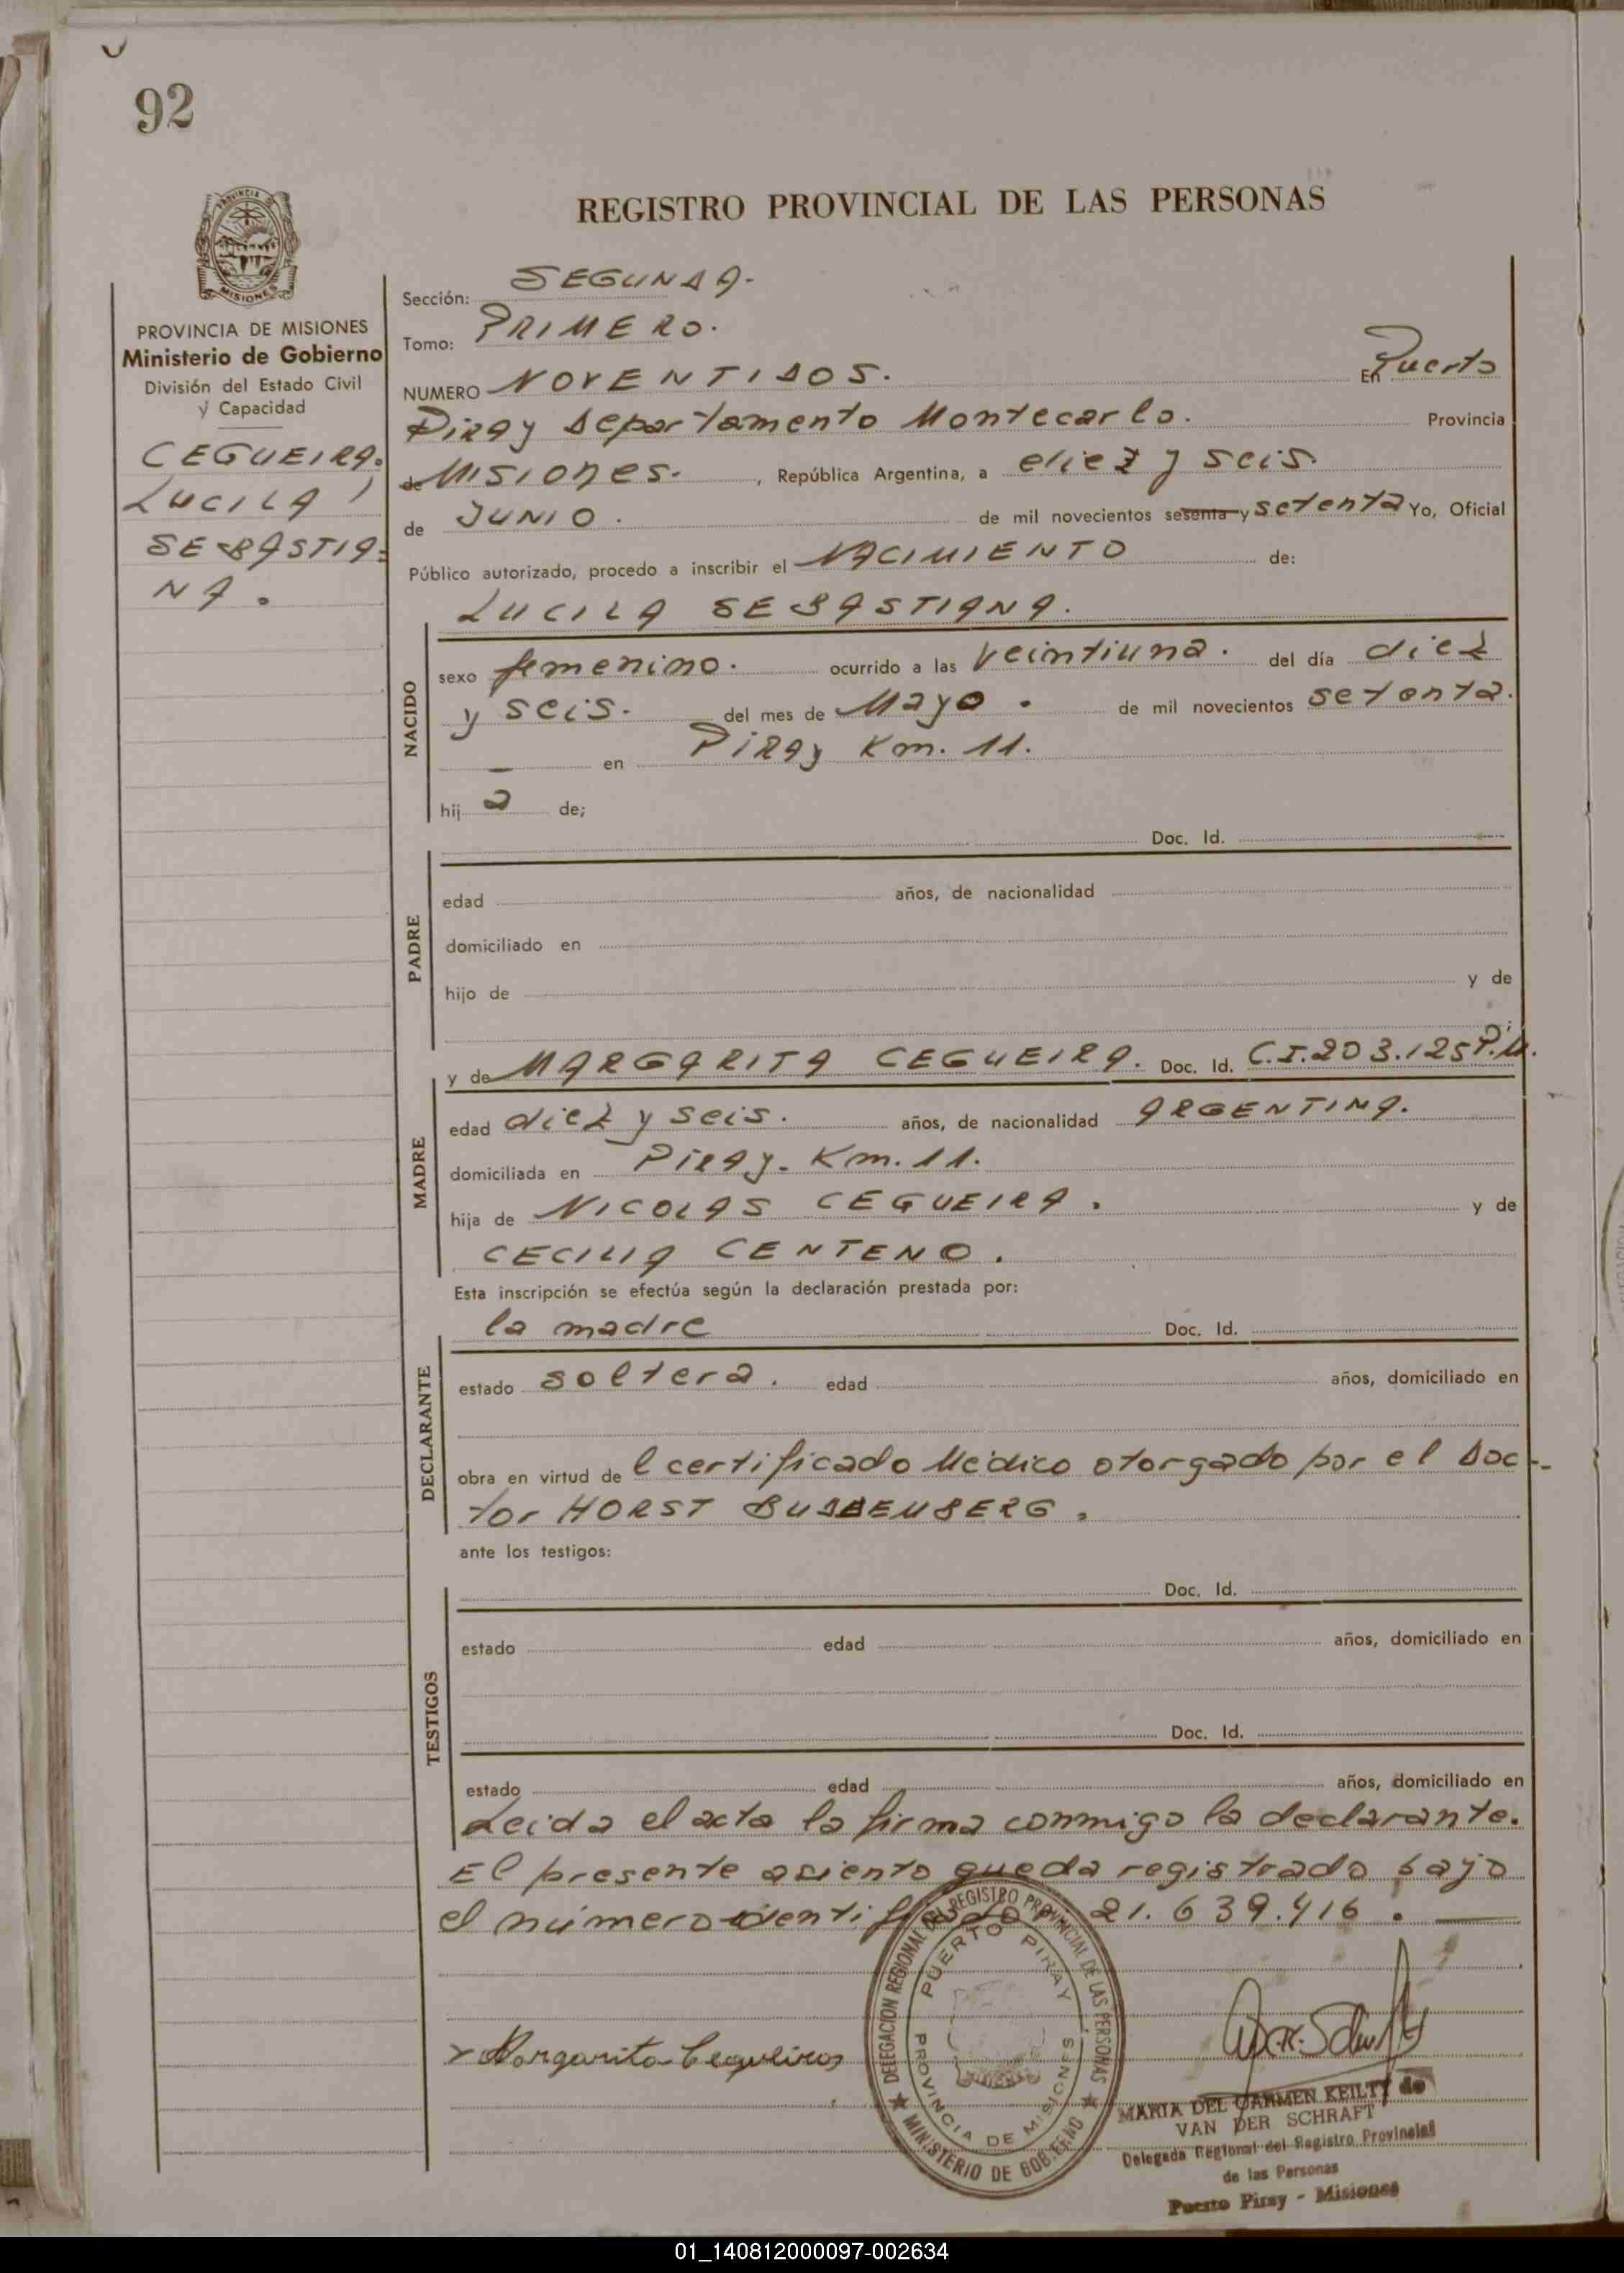 92
REGISTRO PROVINCIAL DE LAS PERSONAS
PROVINCIA DE
MISIONES
PROVINCIA DE MISIONES
Ministerio de Gobierno
División del Estado Civil
y Capacidad
CEGUEIRA.
LUCILA
SEBASTIA=
NA.
Sección: SEGUNDA.
Tomo: PRIMERO.
NUMERO NOVENTIDOS. En Puerto
Piray Departamento Montecarlo. Provincia
de Misiones. , República Argentina, a diez y seis.
de JUNIO. de mil novecientos sesenta y setenta Yo, Oficial
Público autorizado, procedo a inscribir el NACIMIENTO de:
LUCILA SEBASTIANA.
NACIDO
sexo femenino. ocurrido a las veintiuna. del día diez
y seis. del mes de Mayo. de mil novecientos setenta.
— en Piray Km. 11.
hij a de;
Doc. Id.
PADRE
edad años, de nacionalidad
domiciliado en
hijo de y de
y de MARGARITA CEGUEIRA. Doc. Id. C.I.203.125 P.M.
MADRE
edad diez y seis. años, de nacionalidad ARGENTINA.
domiciliada en Piray. Km. 11.
hija de NICOLAS CEGUEIRA. y de
CECILIA CENTENO.
Esta inscripción se efectúa según la declaración prestada por:
la madre Doc. Id.
DECLARANTE
estado soltera. edad años, domiciliado en
obra en virtud de l certificado Médico otorgado por el Doc-
tor HORST
ante los testigos:
Doc. Id.
TESTIGOS
estado edad años, domiciliado en
Doc. Id.
estado edad años, domiciliado en
Leida el acta la firma conmigo la declarante.
El presente asiento queda registrado bajo
el número 21.639.416. —
DELEGACION REGIONAL DEL REGISTRO PROVINCIAL DE LAS PERSONAS
MINISTERIO DE GOBIERNO
PUERTO PIRAY
PROVINCIA DE MISIONES
Margarita Cegueira
MARIA DEL CARMEN KEILTY de
VAN DER SCHRAFT
Delegada Regional del Registro Provincial
de las Personas
Puerto Piray - Misiones
01_140812000097-002634